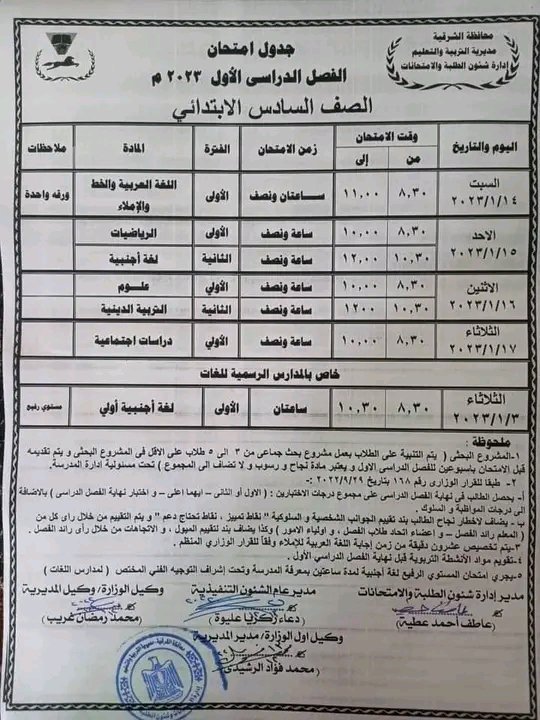 محافظة الشرقية
مديرية التربية والتعليم
إدارة شئون الطلبة والامتحانات
جدول امتحان
الفصل الدراسى الأول ٢٠٢٣ م
الصف السادس الابتدائي
اليوم والتاريخ وقت الامتحان زمن الامتحان الفترة المادة ملاحظات
من إلى
السبت ٢٠٢٣/١/١٤ ٨,٣٠ ١١,٠٠ ساعتان ونصف الأولى اللغة العربية والخط والإملاء ورقه واحدة
الاحد ٢٠٢٣/١/١٥ ٨,٣٠ ١٠,٠٠ ساعة ونصف الأولى الرياضيات
١٠,٣٠ ١٢,٠٠ ساعة ونصف الثانية لغة أجنبية
الاثنين ٢٠٢٣/١/١٦ ٨,٣٠ ١٠,٠٠ ساعة ونصف الأولي علوم
١٠,٣٠ ١٢٠٠ ساعة ونصف الثانية التربية الدينية
الثلاثاء ٢٠٢٣/١/١٧ ٨,٣٠ ١٠,٠٠ ساعة ونصف الأولي دراسات اجتماعية
خاص بالمدارس الرسمية للغات
الثلاثاء ٢٠٢٣/١/٣ ٨,٣٠ ١٠,٣٠ ساعتان الأولى لغة أجنبية أولي مستوي رفيع
ملحوظة :
١-المشروع البحثى ( يتم التنبية على الطلاب بعمل مشروع بحث جماعى من ٣ الى ٥ طلاب على الأقل فى المشروع البحثى و يتم تقديمه
قبل الامتحان باسبوعين للفصل الدراسى الاول و يعتبر مادة نجاح و رسوب و لا تضاف الى المجموع ) تحت مسئولية ادارة المدرسة.
٢- طبقا للقرار الوزارى رقم ١٦٨ بتاريخ ٢٠٢٢/٩/٢٩ :-
أ- يحصل الطالب فى نهاية الفصل الدراسى على مجموع درجات الاختبارين : (الاول أو الثانى - ايهما اعلى - و اختبار نهاية الفصل الدراسى ) بالاضافة
إلى درجات المواظبة و السلوك .
ب - يضاف لاخطار نجاح الطالب بند تقييم الجوانب الشخصية و السلوكية " نقاط تمييز ، نقاط تحتاج دعم " و يتم التقييم من خلال راى كل من
( المعلم رائد الفصل - و اعضاء اتحاد طلاب الفصل ، و اولياء الامور ) وكذا يضاف بند لتقييم الميول ، و الاتجاهات من خلال رأى رائد الفصل .
٣-يتم تخصيص عشرون دقيقة من زمن إجابة اللغة العربية للإملاء وفقاً للقرار الوزاري المنظم .
٤-تقويم مواد الأنشطة التربوية قبل نهاية الفصل الدراسي الأول .
٥-يجري امتحان المستوي الرفيع لغة أجنبية لمدة ساعتين بمعرفة المدرسة وتحت إشراف التوجيه الفني المختص ( لمدارس اللغات )
مدير إدارة شئون الطلبة والامتحانات
مدير عام الشئون التنفيذية
وكيل الوزارة / وكيل المديرية
عاطف أحمد عطية)
(دعاء زكريا عليوة)
(محمد رمضان غريب)
وكيل اول الوزارة / مدير المديرية
(محمد فؤاد الرشيدى)